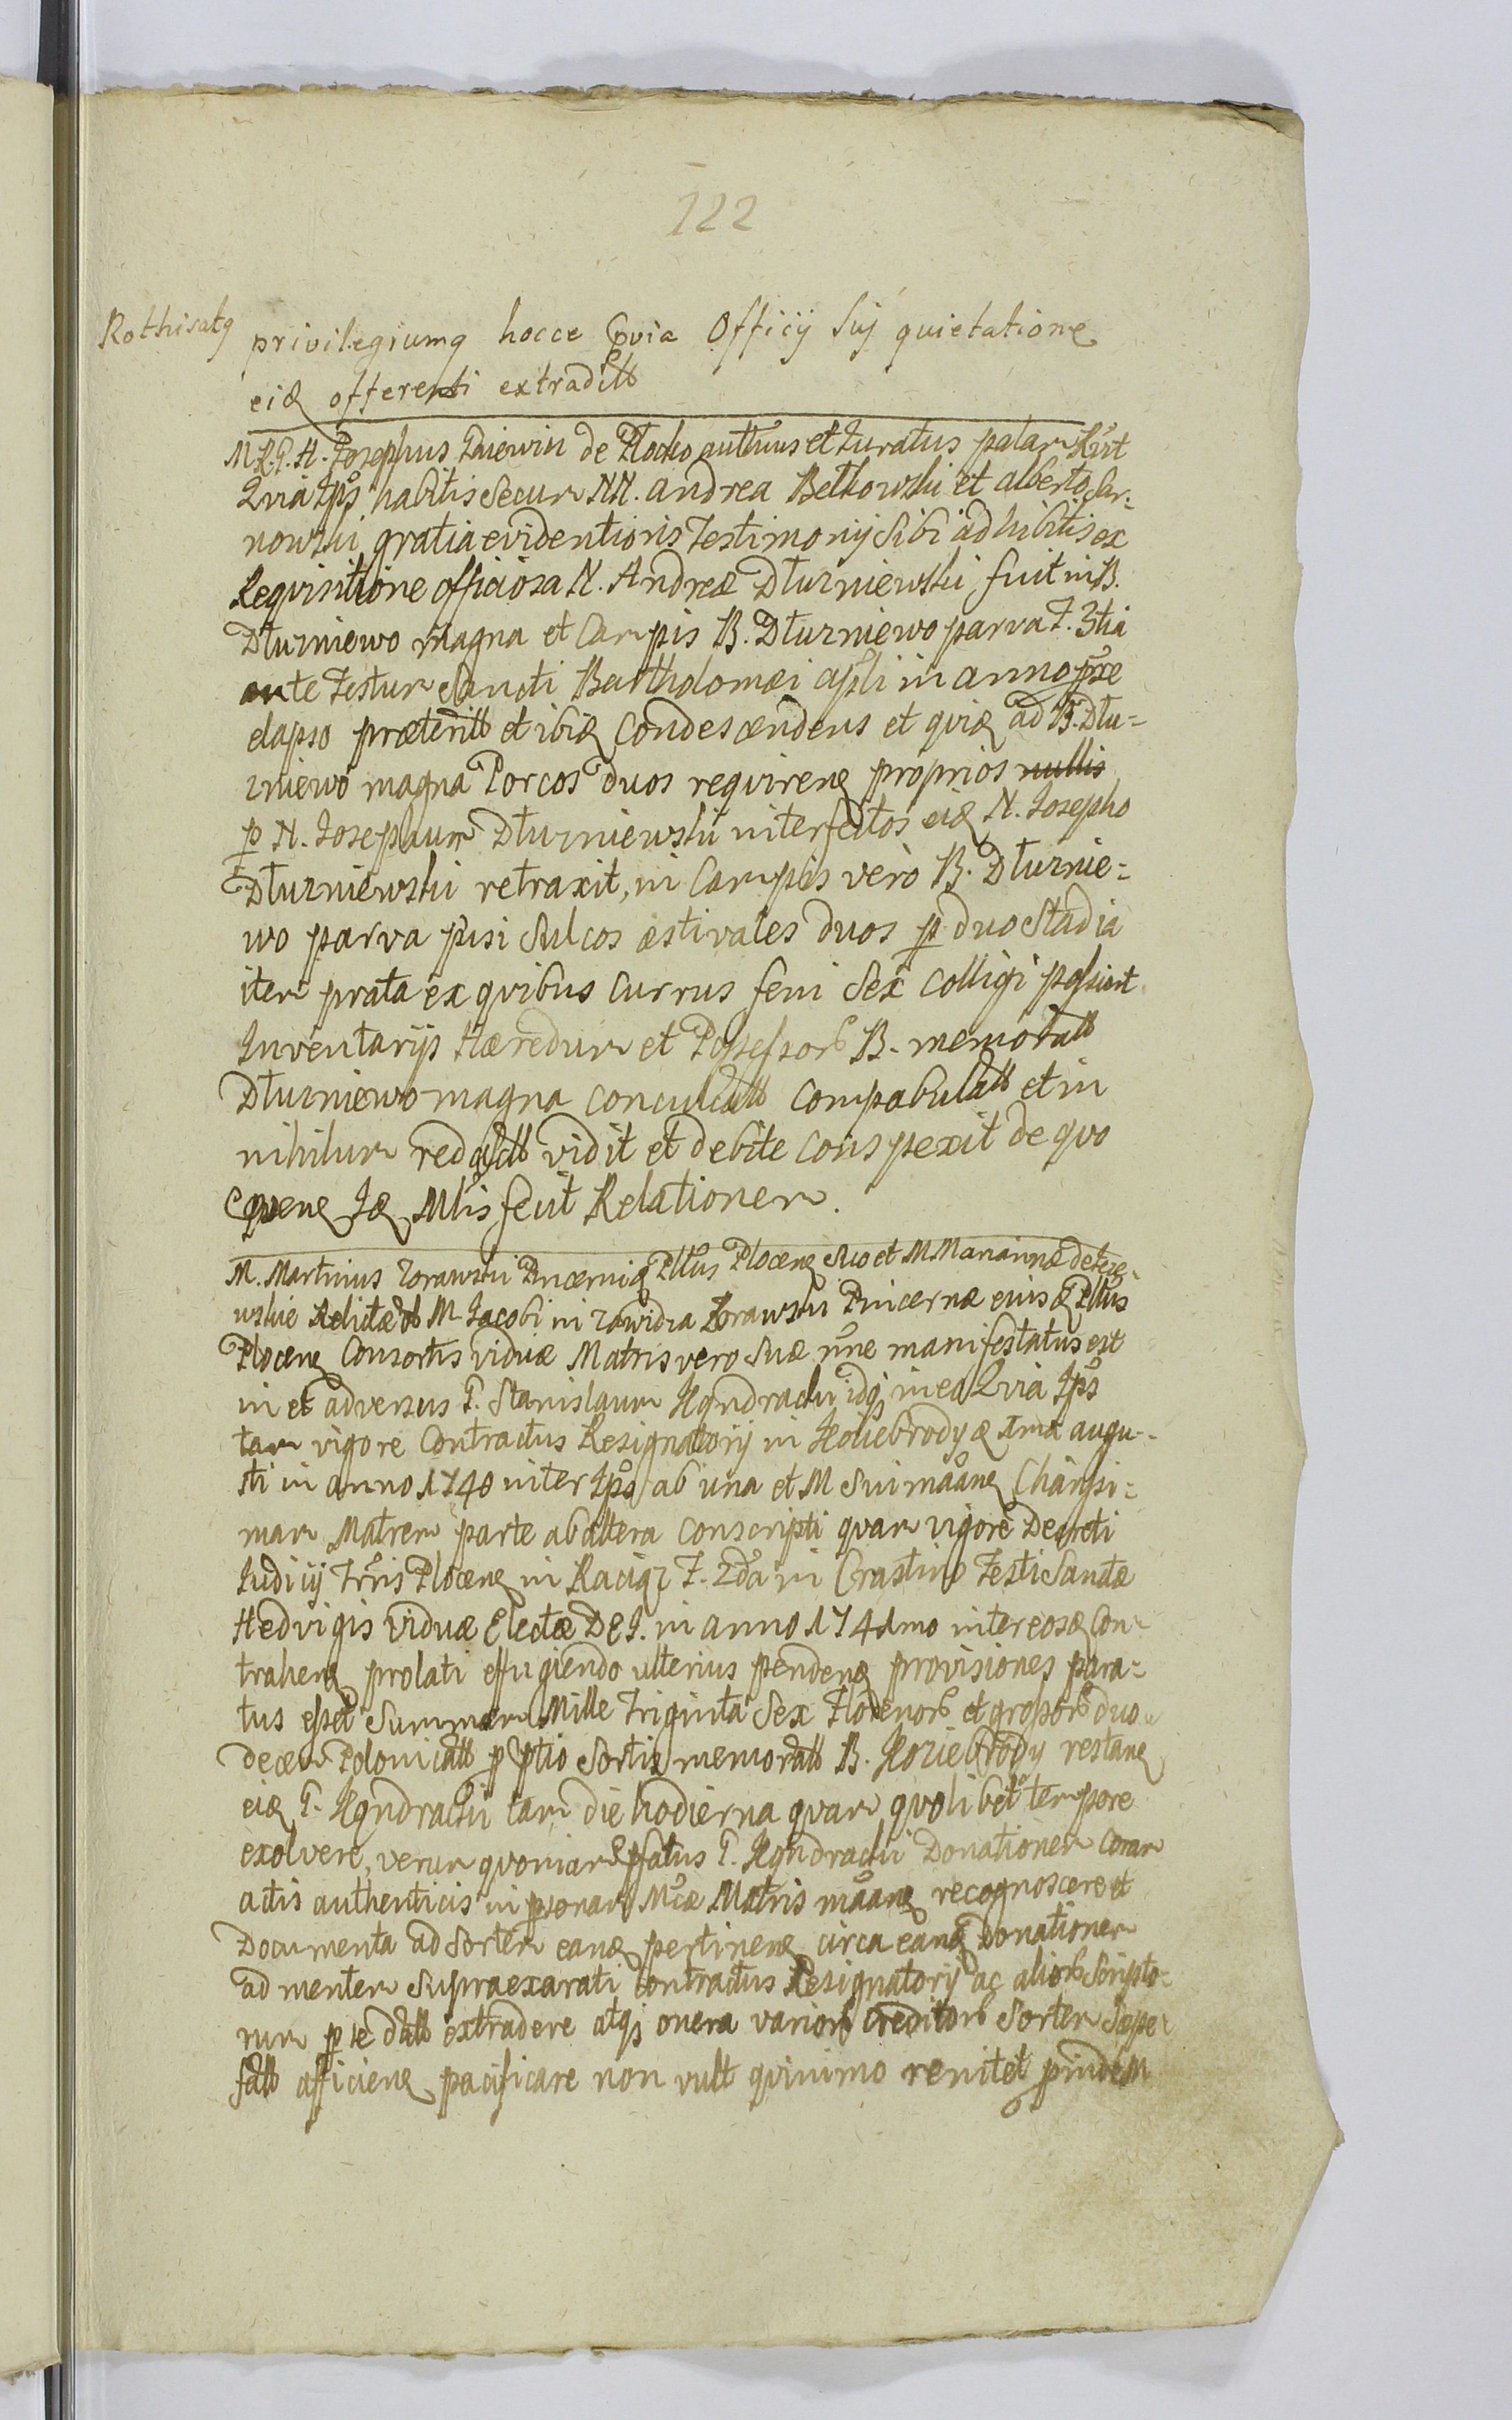 122
Rothisatq privilegiumq hocce Qvia Officij Sij quietatione
eiq offerenti extradill
M R. P. H. Josephus de Plocko et Juratus palam
Qvia Ips habitis Secum NN. Andrea Betkowski et Alberto Sar-
nowski gratia evidentioris Testimonij Sibi adhibitis ex
Requisitione officiosa N. Andreæ Dłurniewski fuit in B.
Dłurniewo magna et Campis B. Dłurniewo parva F. 3tia
ante Festum Sancti Bartholomæi Apli in anno pxe
elapso præterill et ibiq Condescendens et qviq ad B. Dłu-
rniewo magna Porcos duos reqvirenq proprios nullis
p N. Josephum Dłurniewski interfectos eiq N. Josepho
Dłurniewski retraxit, in Campis verò B. Dłurnie-
wo parva pisi Sulcos æstivales duos p duo Stadia
item prata ex qvibus Currus feni Sex Colligi possunt
Inventarijs Hæredum et Possessorb B. memorall
Dłurniewo magna conculcall Compabulall et in
nihilum redactll vidit et debite Conspexit de qvo
Jq Mlis fecit Relationem.
M. Martinus Zorawski Plltus Plocenq Suo et M Mariannæ
wskie Relictæ M Jacobi in Zawidza Zorawski Pincernæ eiusq Plltus
Plocenq Consortis viduæ Matris vero Suæ nne manifestatus est
in et adversus G. Stanislaum idqs in eo Qvia Ips
tam vigore Contractus Resignatorij in 1ma augu-
sti in anno 1740 inter Ips ab una et M Sui Charissi-
mam Matrem parte ab altera conscripti qvam vigore Decreti
Judicij Trris Plocenq in Raciąz F. 2da in Crastino Festi Sanctæ
Hedvigis Viduæ Electæ DEI. in anno 1741mo inter eosq Con-
trahenq prolati effugiendo ulterius pendenq provisiones para-
tus esset Summam Mille Triginta Sex Florenorb et grossorb duo-
decem Polonicall p ptio Sortis memorall B. restanq
eiq G. tam die hodierna qvam qvolibet tempore
exolvere, verum qvoniam pfatus G. Donationem Coram
actis authenticis in psonam Mcæ Matris recognoscere et
Documenta ad Sortem eanq pertinenq circa eanq Donationem
ad mentem Supraexarati Contractus Resignatorij ac aliorb Scripto-
rum p se dall extradere atqs onera variorb Creditorb Sortem Sæpe
fall afficienq pacificare non vult qvinimo renitet